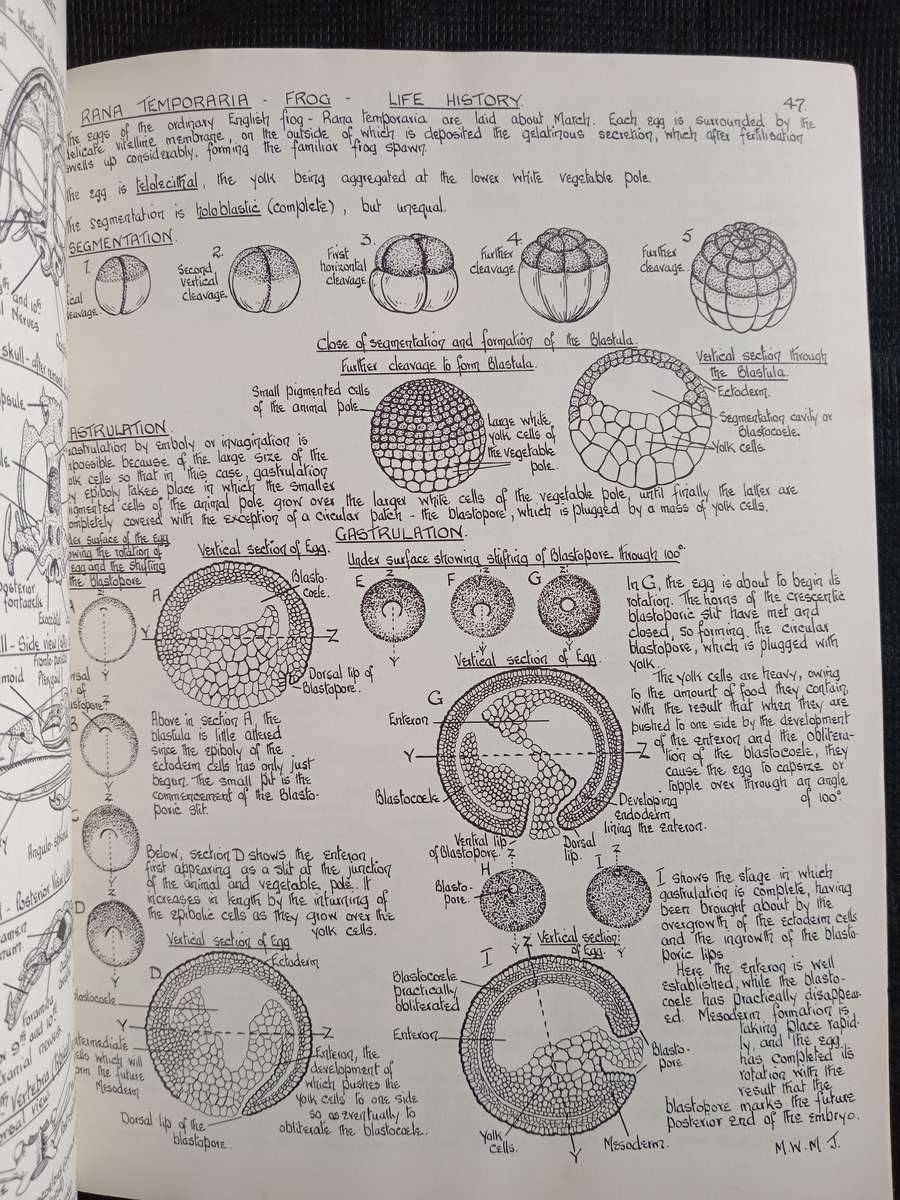 RANA TEMPORARIA - FROG - LIFE HISTORY.
47.
The eggs of the ordinary English frog - Rana temporaria are laid about March. Each egg is surrounded by the
delicate vitelline membrane, on the outside of which is deposited the gelatinous secretion, which after fertilisation
swells up considerably, forming the familiar frog spawn.
The egg is telolecithal, the yolk being aggregated at the lower white vegetable pole.
The segmentation is holoblastic (complete), but unequal.
SEGMENTATION.
1.
cleavage.
2.
Second
vertical
cleavage.
3.
First
horizontal
cleavage
4.
Further
cleavage.
5
Further
cleavage.
Close of segmentation and formation of the Blastula.
Further cleavage to form Blastula.
Small pigmented cells
of the animal pole.
Large white,
yolk cells of
the vegetable
pole.
Vertical section through
the Blastula.
Ectoderm.
Segmentation cavity or
Blastocoele.
Yolk cells.
ASTRULATION.
by emboly or invagination is
because of the large size of the
cells so that in this case, gastrulation
by epiboly takes place in which the smaller
pigmented cells of the animal pole grow over the larger white cells of the vegetable pole, until finally the latter are
completely covered with the exception of a circular patch - the blastopore, which is plugged by a mass of yolk cells.
GASTRULATION.
surface of the egg
the rotation of
egg and the shifting
the Blastopore
Z
Y
Z
B
Y
Z
C
Y
Z
D
Y
Vertical section of Egg.
A
Blasto-
coele.
Y
Z
Dorsal lip of
Blastopore.
Above in section A, the
blastula is little altered
since the epiboly of the
ectoderm cells has only just
begun. The small pit is the
commencement of the Blasto-
poric slit.
Below, section D shows the enteron
first appearing as a slit at the junction
of the animal and vegetable pole. It
increases in length by the inturning of
the epibolic cells as they grow over the
yolk cells.
Vertical section of Egg
Ectoderm
D
Blastocoele
Y
Z
Intermediate
cells which will
form the future
Mesoderm
Dorsal lip of the
blastopore.
Enteron, the
development of
which pushes the
yolk cells to one side
so as eventually to
obliterate the blastocoele..
Under surface showing shifting of Blastopore through 100°.
E
Z
Y
F
Z
Y
G
Z
Y
Vertical section of Egg.
G
Enteron
Y
Z
Blastocoele
Ventral lip
of Blastopore.
Dorsal
lip.
Developing
endoderm
lining the enteron.
In G, the egg is about to begin its
rotation. The horns of the crescentic
blastoporic slit have met and
closed, so forming the circular
blastopore, which is plugged with
yolk.
The yolk cells are heavy, owing
to the amount of food they contain,
with the result that when they are
pushed to one side by the development
of the enteron and the oblitera-
tion of the blastocoele, they
cause the egg to capsize or
topple over through an angle
of 100°.
H
Z
Blasto-
pore.
Y
I
Z
Y
Vertical section
of Egg.
I
Z
Blastocoele
practically
obliterated
Enteron
Blasto-
pore
Yolk
cells.
Mesoderm.
Y
I shows the stage in which
gastrulation is complete, having
been brought about by the
overgrowth of the ectoderm cells
and the ingrowth of the blasto-
poric lips
Here the enteron is well
established, while the blasto-
coele has practically disappear-
ed. Mesoderm formation is
taking place rapid-
ly, and the egg
has completed its
rotation with the
result that the
blastopore marks the future
posterior end of the embryo.
M.W.M J.
and 10th
Nerves
Posterior
fontanelle
Side view
Angulo-
Posterior View
Foramen
cranial nerves
Vertebra